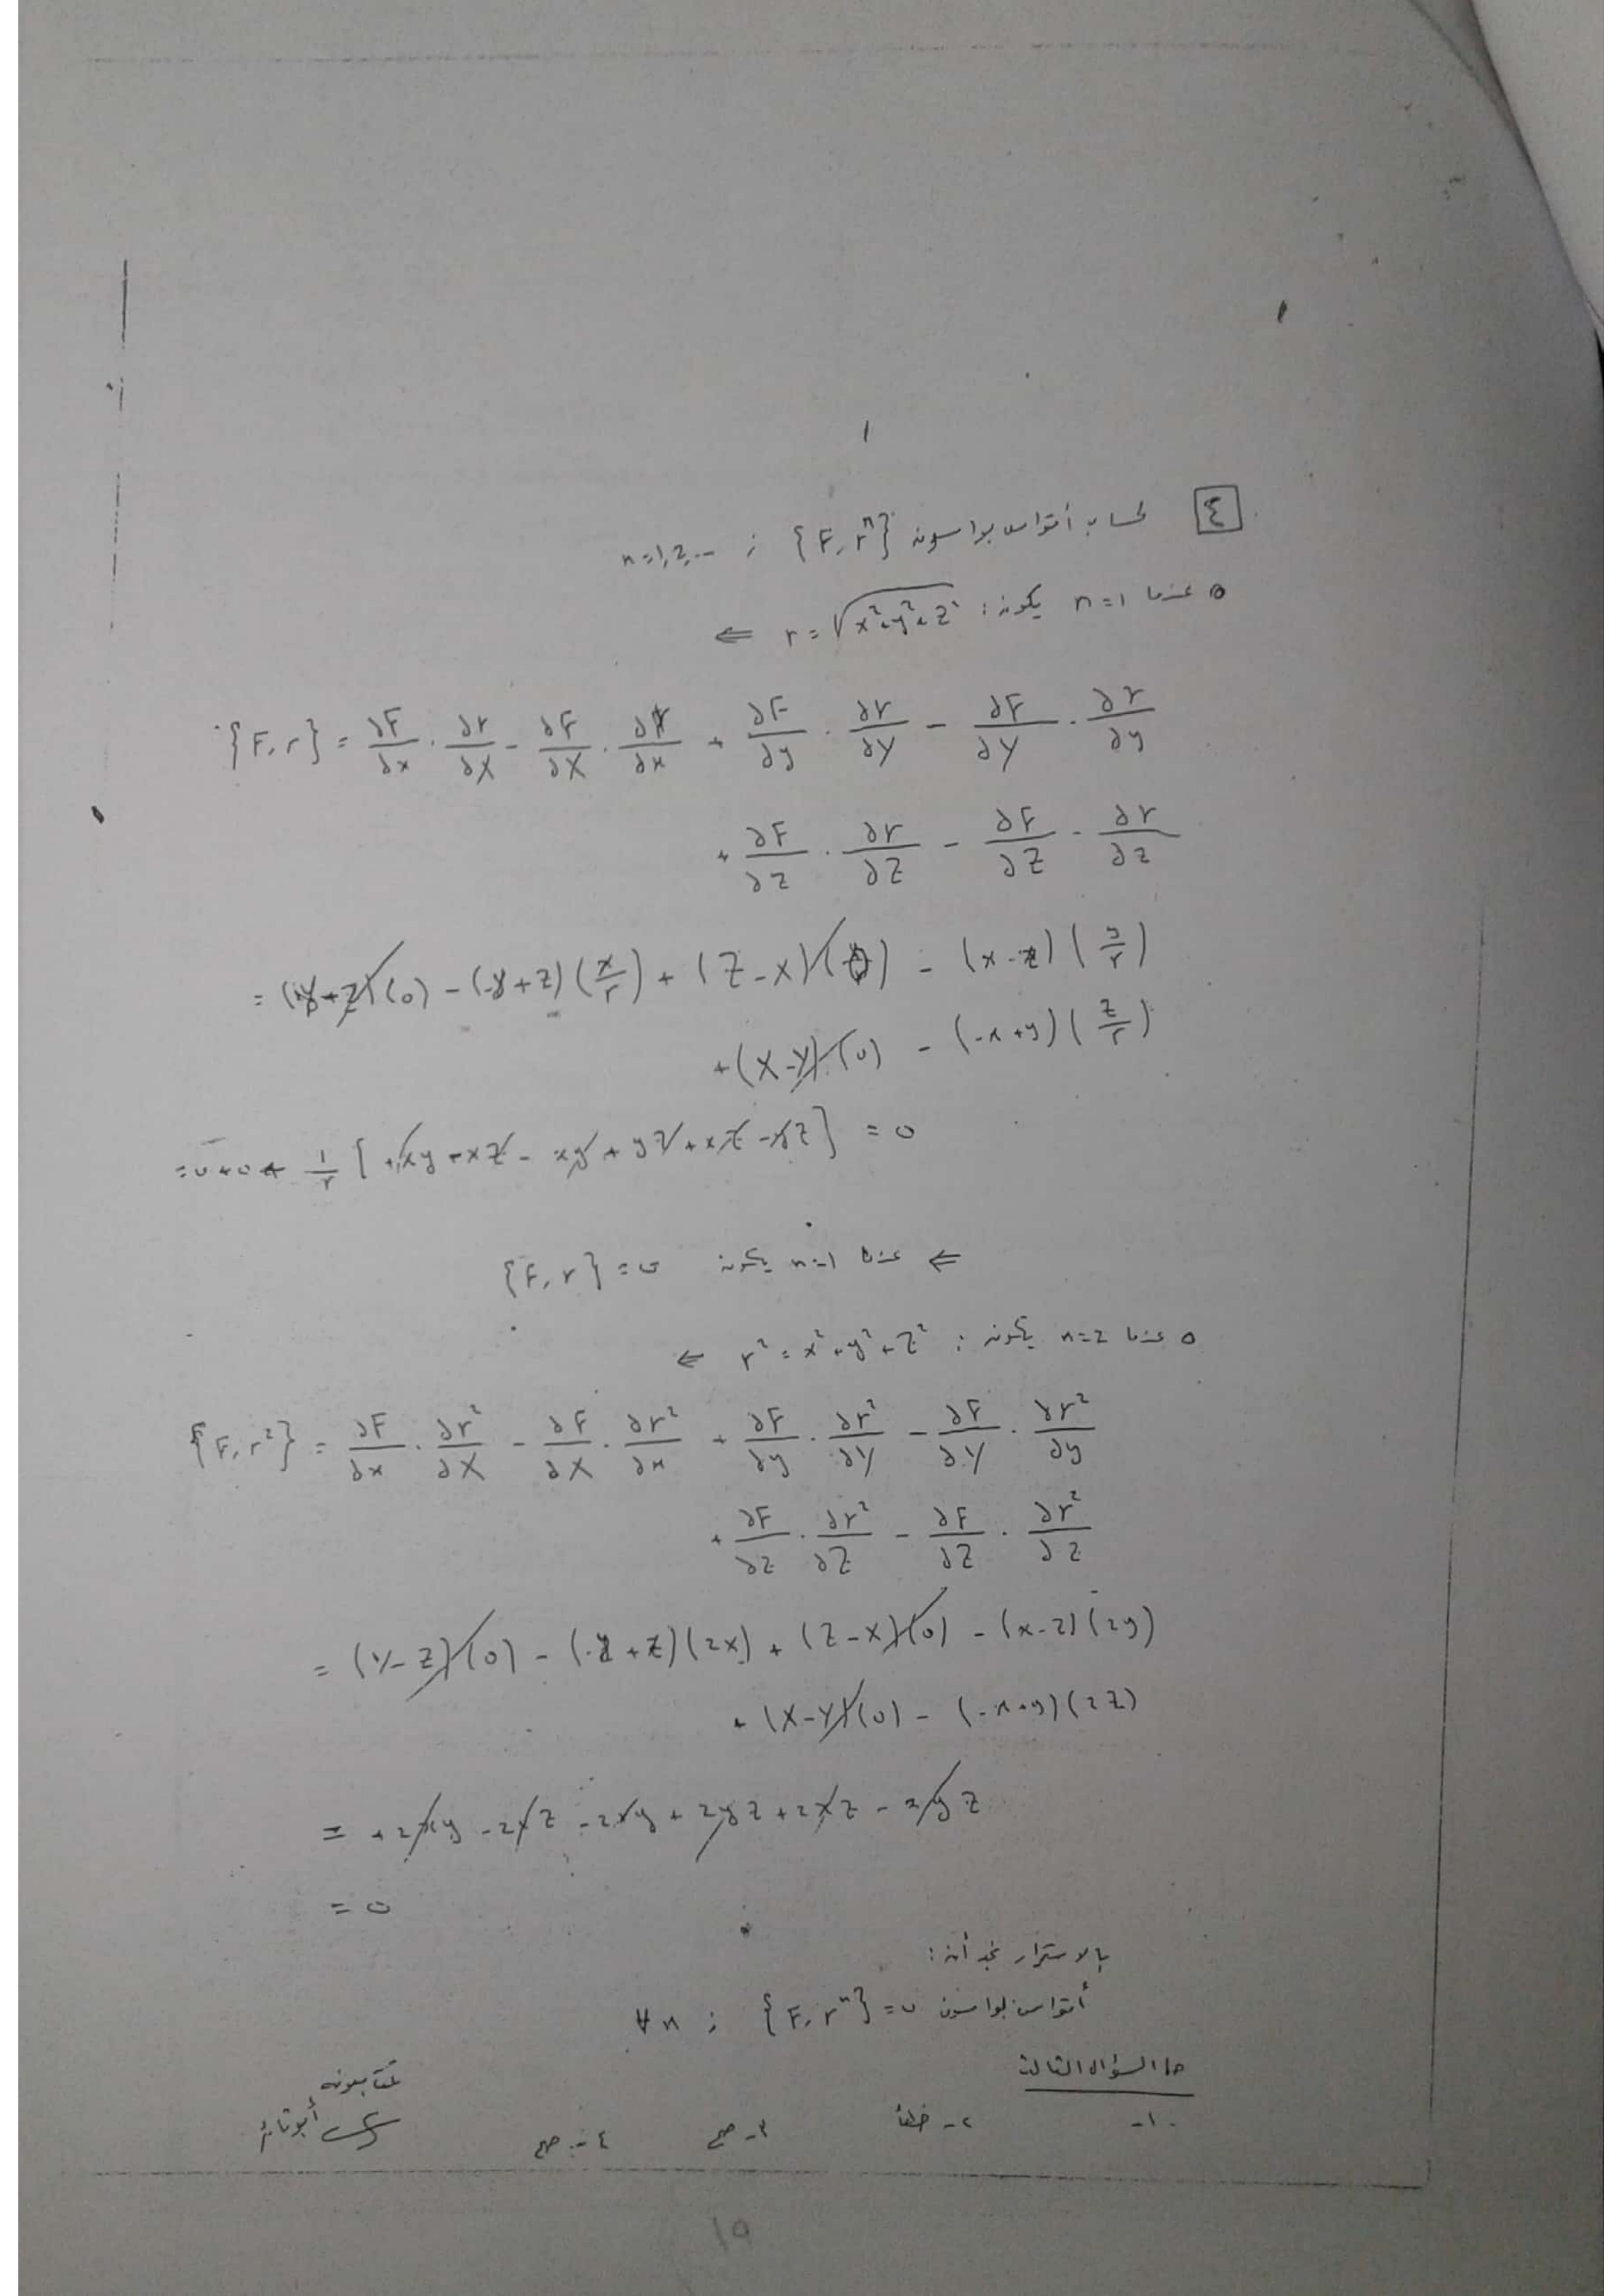 ٤ لحساب أقواس بواسون {F, rⁿ} ; n=1,2,...
• عندما n=1 يكون: r=√(x²+y²+z²) ⇐
{F, r} = ∂F/∂x · ∂r/∂X - ∂F/∂X · ∂r/∂x + ∂F/∂y · ∂r/∂Y - ∂F/∂Y · ∂r/∂y
+ ∂F/∂z · ∂r/∂Z - ∂F/∂Z · ∂r/∂z
= (-Y+Z)(0) - (-y+z)(x/r) + (Z-X)(0) - (x-z)(y/r)
+(X-Y)(0) - (-x+y)(z/r)
=0+0+ 1/r [+xy-xz-xy+yz+xz-yz] = 0
⇐ عندما n=1 يكون {F, r} = 0
• عندما n=2 يكون: r²=x²+y²+z² ⇐
{F, r²} = ∂F/∂x · ∂r²/∂X - ∂F/∂X · ∂r²/∂x + ∂F/∂y · ∂r²/∂Y - ∂F/∂Y · ∂r²/∂y
+ ∂F/∂z · ∂r²/∂Z - ∂F/∂Z · ∂r²/∂z
= (Y-Z)(0) - (-y+z)(2x) + (Z-X)(0) - (x-z)(2y)
+ (X-Y)(0) - (-x+y)(2z)
= +2xy-2xz-2xy+2yz+2xz-2yz
= 0
بالاستقراء نجد أن:
أقواس بواسون {F, rⁿ} = 0 ; ∀n
حل السؤال الثالث
١- ٢- خطأ ٣- صح ٤- صح
19